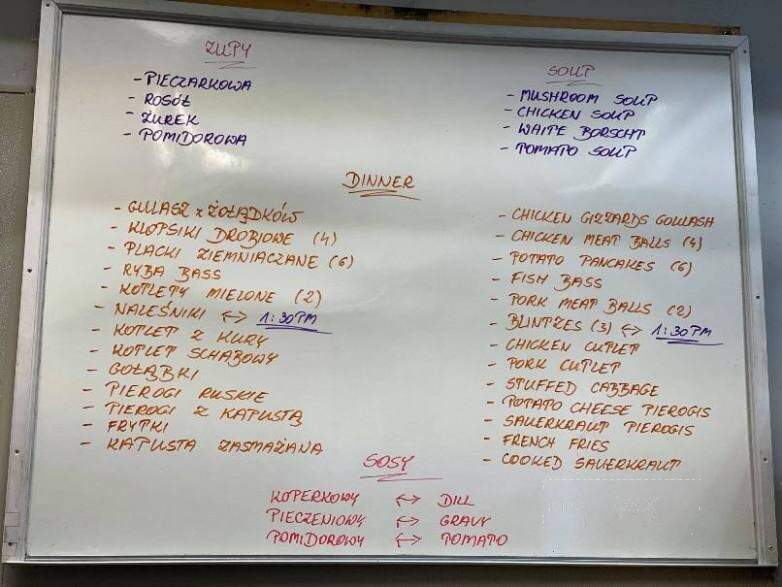 ZUPY
- PIECZARKOWA
- ROSÓŁ
- ŻUREK
- POMIDOROWA
SOUP
- MUSHROOM SOUP
- CHICKEN SOUP
- WHITE BORSCHT
- TOMATO SOUP
DINNER
- GULASZ z ŻOŁĄDKÓW
- KLOPSIKI DROBIOWE (4)
- PLACKI ZIEMNIACZANE (6)
- RYBA BASS
- KOTLETY MIELONE (2)
- NALEŚNIKI <-> 1:30PM
- KOTLET Z KURY
- KOTLET SCHABOWY
- GOŁĄBKI
- PIEROGI RUSKIE
- PIEROGI Z KAPUSTĄ
- FRYTKI
- KAPUSTA ZASMAŻANA
- CHICKEN GIZZARDS GOULASH
- CHICKEN MEAT BALLS (4)
- POTATO PANCAKES (6)
- FISH BASS
- PORK MEAT BALLS (2)
- BLINTZES (3) <-> 1:30PM
- CHICKEN CUTLET
- PORK CUTLET
- STUFFED CABBAGE
- POTATO CHEESE PIEROGIS
- SAUERKRAUT PIEROGIS
- FRENCH FRIES
- COOKED SAUERKRAUT
SOSY
KOPERKOWY <-> DILL
PIECZENIOWY <-> GRAVY
POMIDOROWY <-> TOMATO